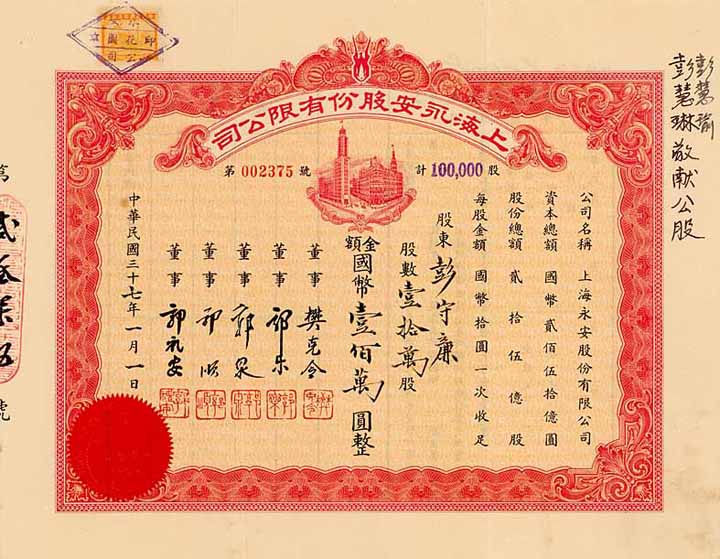 上海永安股份有限公司
第 002375 號
計 100,000 股
公司名稱 上海永安股份有限公司
資本總額 國幣貳佰伍拾億圓
股份總額 貳拾伍億股
每股金額 國幣拾圓一次收足
股東 彭守廉
股數壹拾萬股
金額國幣壹佰萬圓整
董事 樊克令
董事
董事 郭泉
董事 郭順
董事 郭礼安
中華民國三十七年一月一日
彭慧瑜
彭慧琳敬献公股